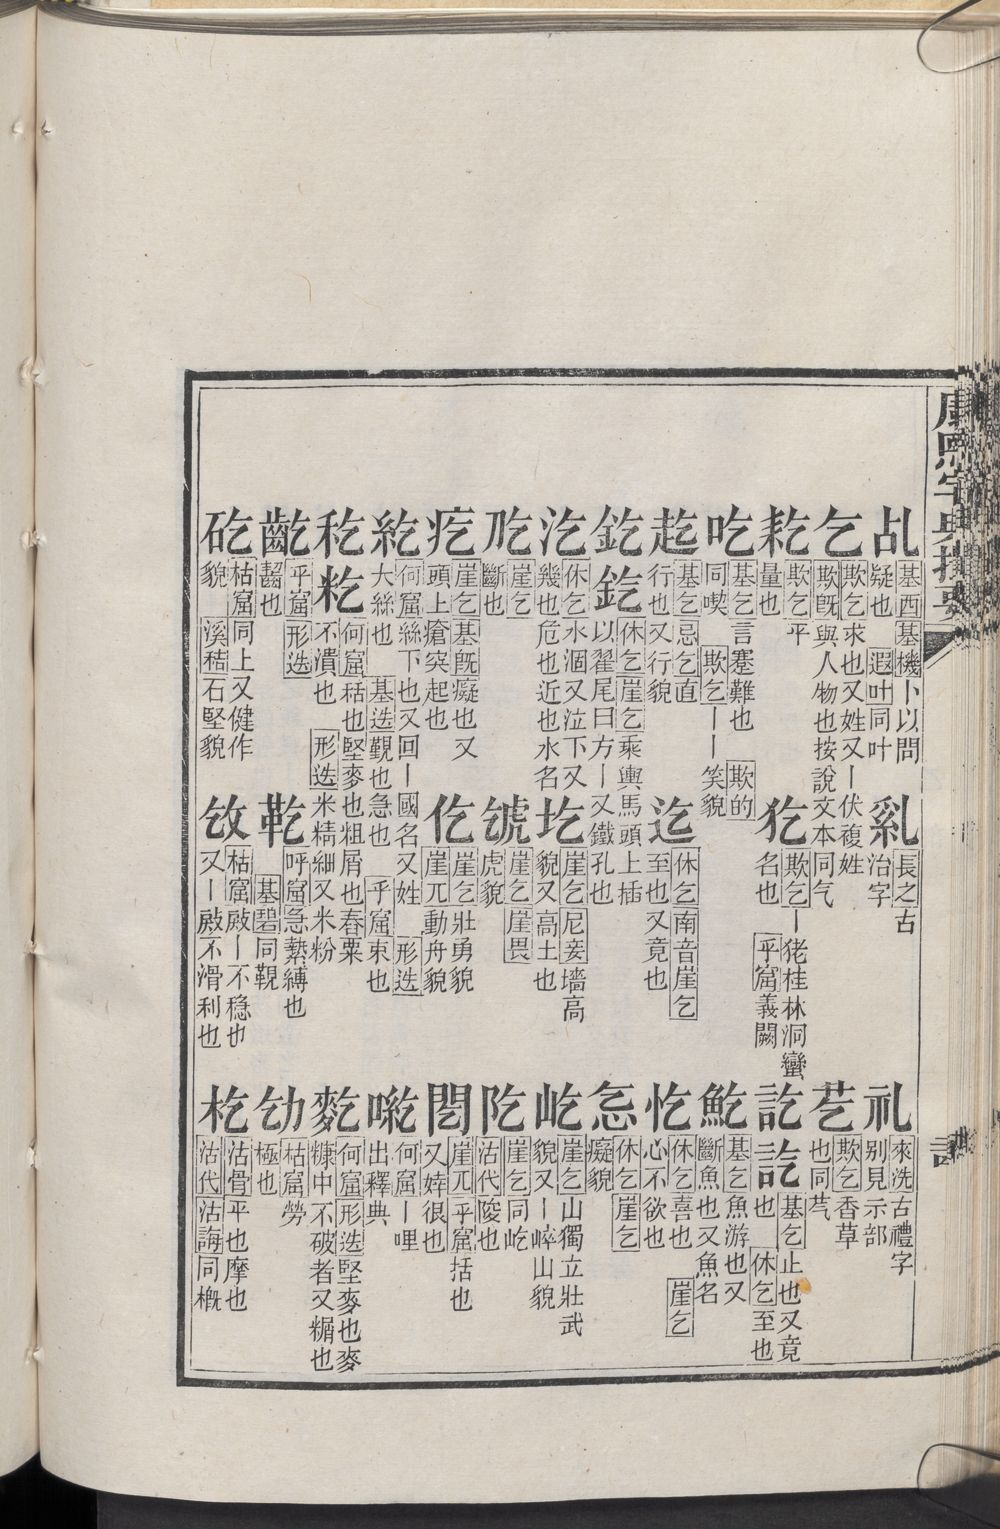 康熙字典撮要
乩 基西基機卜以問
疑也 遐叶同叶
乿 長之古
治字
礼 來洗古禮字
別見示部
乞 欺乞求也又姓又丨伏複姓
欺旣與人物也按說文本同气
芞 欺乞香草
也同芞
䎢 欺乞平
量也
犵 欺乞丨狫桂林洞蠻
名也 乎窟義闕
訖訖 基乞止也又竟
也 休乞至也
吃 基乞言蹇難也 欺的
同喫 欺乞丨丨笑貌
䰴 基乞魚游也又
斷魚也又魚名
䞘 基乞忌乞直
行也又行貌
迄 休乞南音崖乞
至也又竟也
忔 休乞喜也 崖乞
心不欲也
釳釳 休乞崖乞乘輿馬頭上插
以翟尾曰方丨又鐵孔也
忥 休乞崖乞
癡貌
汔 休乞水涸又泣下又
幾也危也近也水名
圪 崖乞尼妾墻高
貌又高土也
屹 崖乞山獨立壯武
貌又丨崪山貌
崖乞
斷也
崖乞崖畏
虎貌
阣 崖乞同屹
沽代陖也
疙 崖乞基旣癡也又
頭上瘡突起也
仡 崖乞壯勇貌
崖兀動舟貌
崖兀乎窟括也
又婞很也
紇 何窟絲下也又回丨國名又姓 形迭
大絲也 基迭覲也急也 乎窟束也
何窟丨哩
出釋典
籺 何窟秳也堅麥也粗屑也舂粟
不潰也 形迭米精細又米粉
麧 何窟形迭堅麥也麥
糠中不破者又糏也
齕 乎窟形迭
齧也
呼窟急縶縛也
基碧同
枯窟勞
極也
矻 枯窟同上又健作
貌 溪秸石堅貌
枯窟丨不稳也
又丨不滑利也
杚 沽骨平也摩也
沽代沽誨同槪